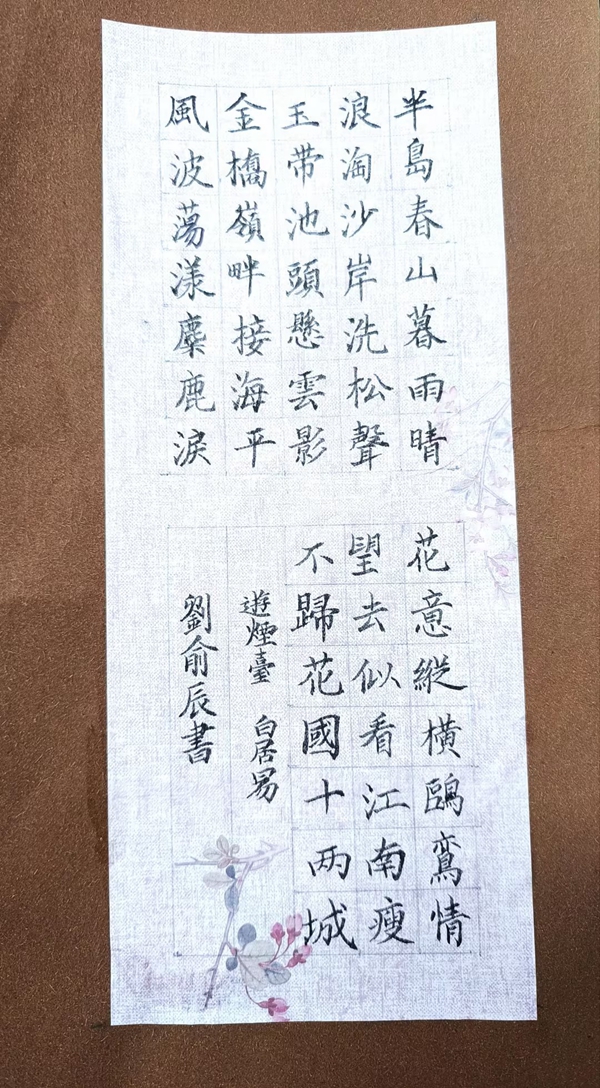 半島春山暮雨晴
浪淘沙岸洗松聲
玉带池頭懸雲影
金橋嶺畔接海平
風波蕩漾麋鹿淚
花意縱橫鷗鸞情
望去似看江南瘦
不歸花國十两城
遊煙臺 白居易
劉俞辰書